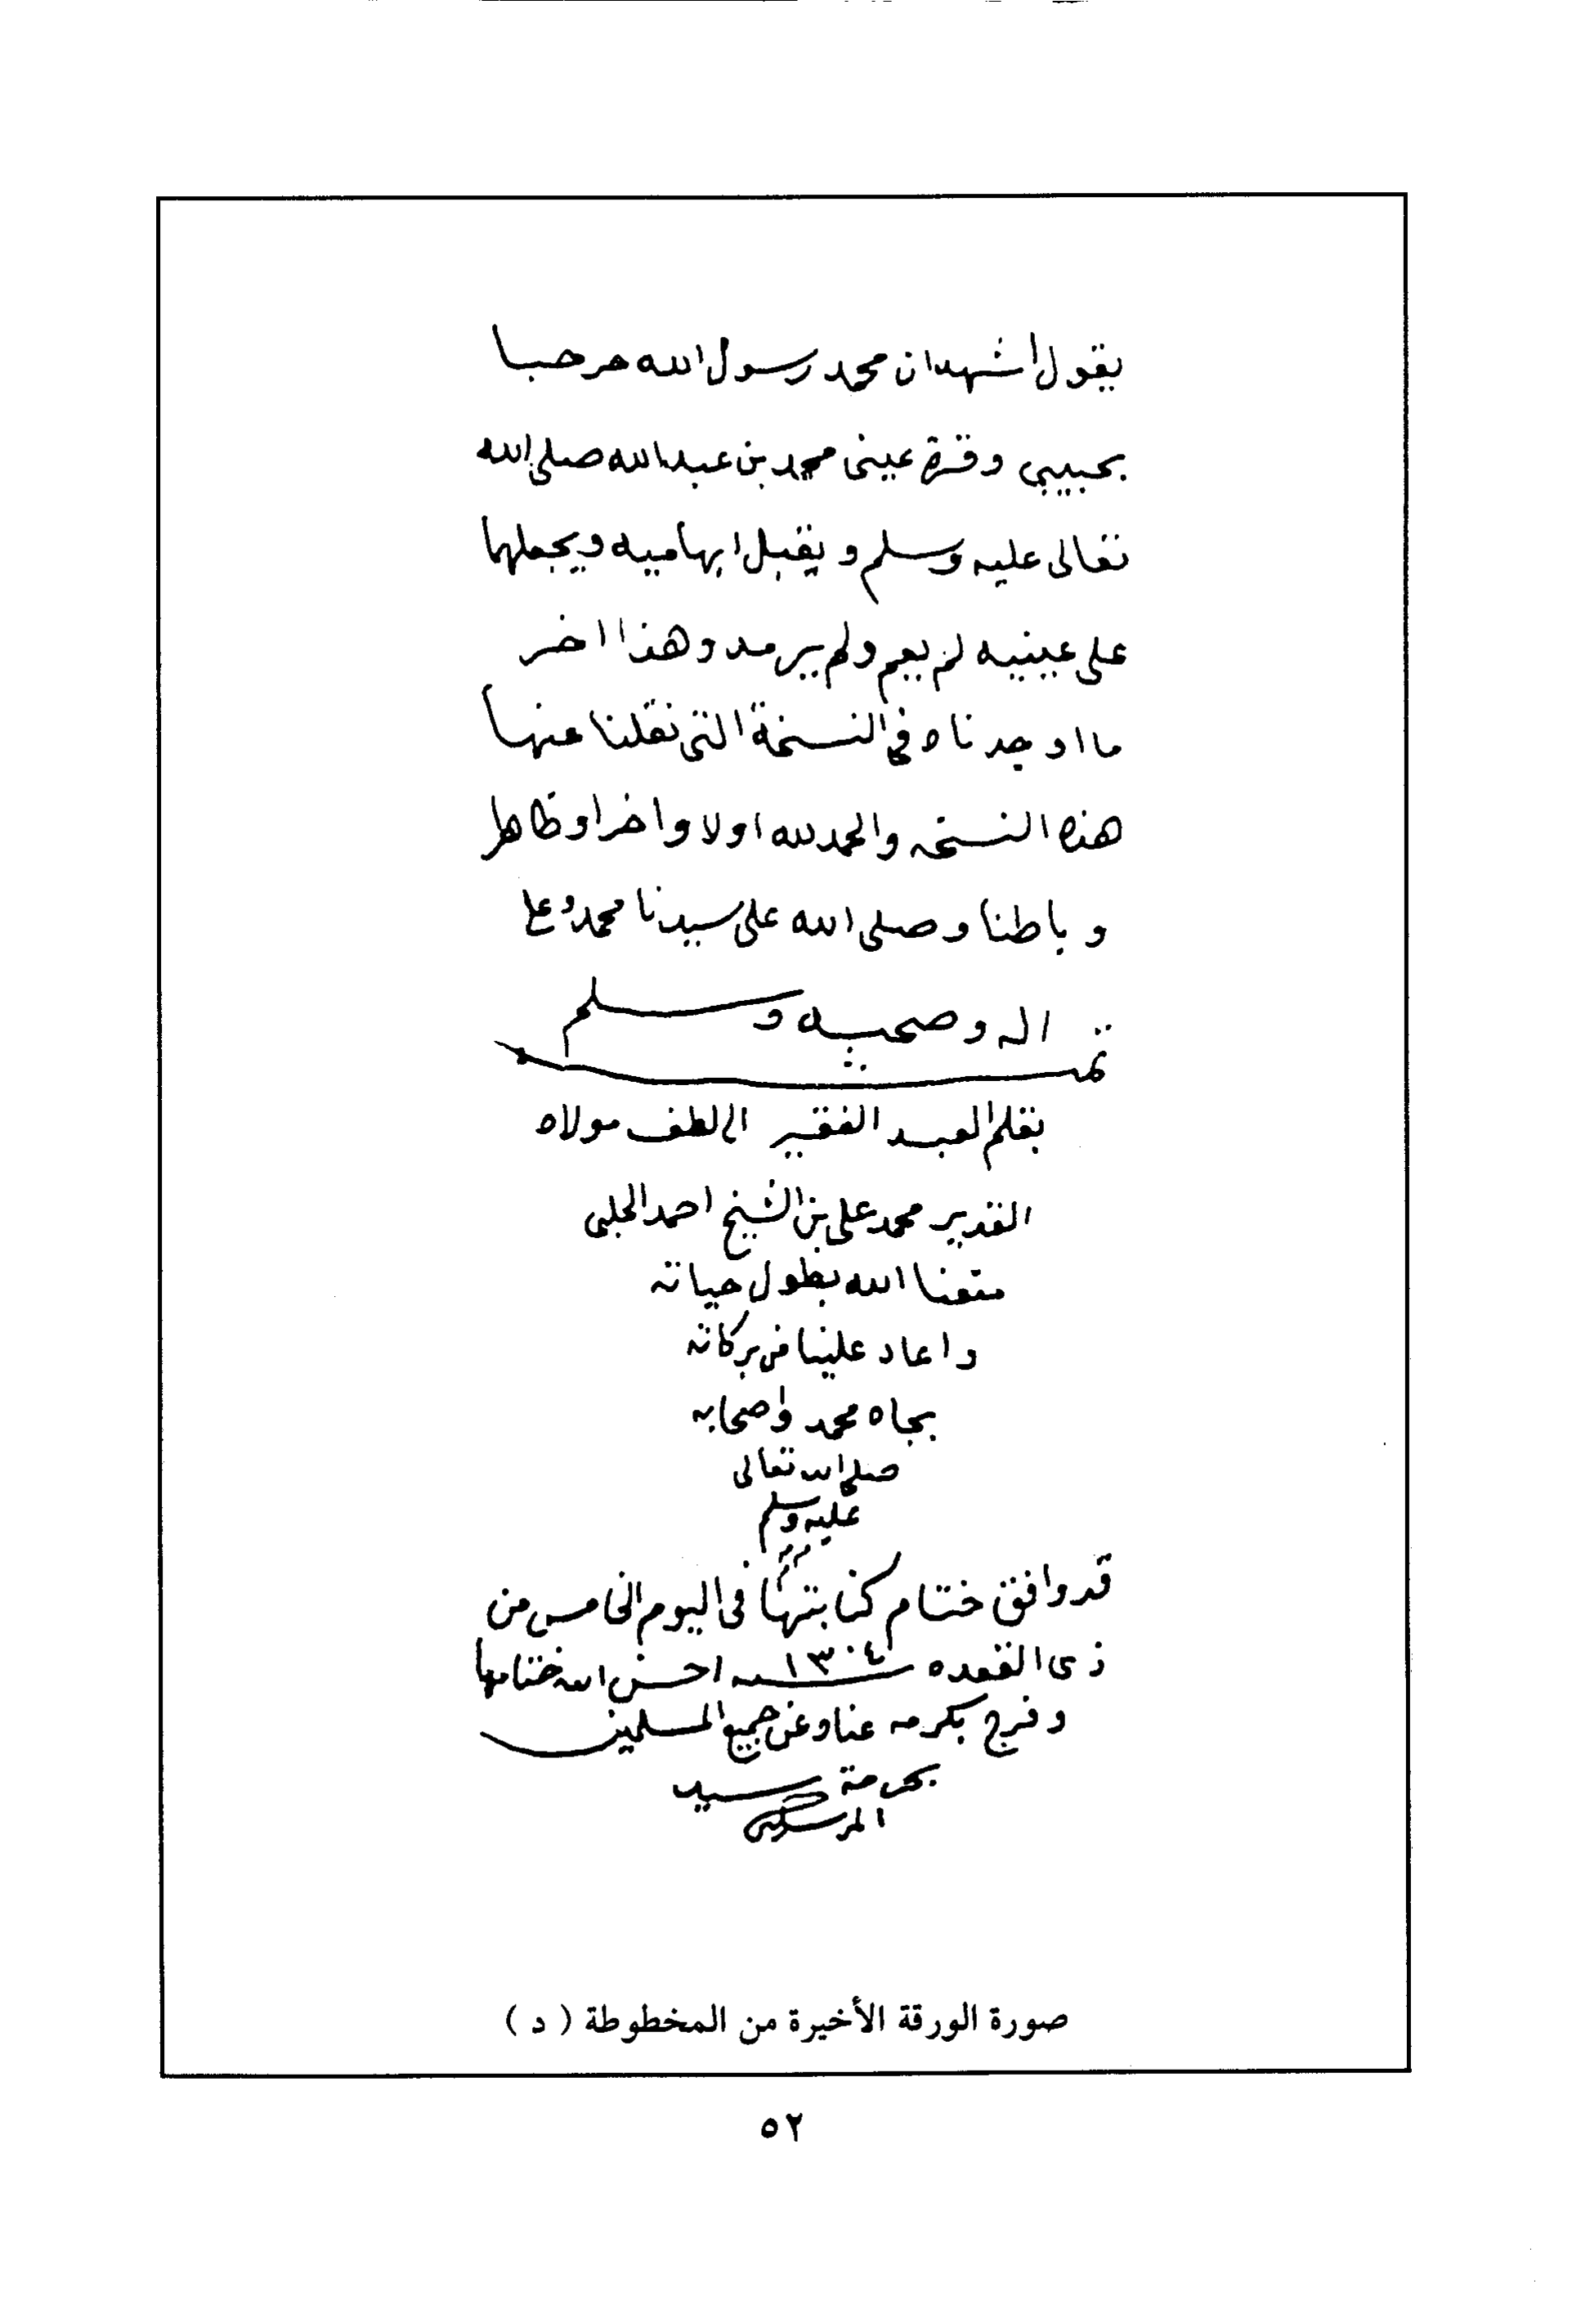 يقول اشهدان محمد رسول الله مرحبا
بحبيبي وقرة عينى محمد بن عبدالله صلى الله
تعالى عليه وسلم ويقبل ابهاميه ويجعلهما
على عينيه لم يعم ولم يرمد وهذا اخر
ما اوجدناه في النسخة التى نقلنا عنها
هذه النسخه والحمد لله اولا واخرا وظاهر
وباطنا وصلى الله على سيدنا محمد وعلى
اله وصحبه وسلم
تمت
بقلم العبد الفقير الى لطف مولاه
القدير محمد على بن الشيخ احمد الجلبى
متعنا الله بطول حياته
واعاد علينا من بركاته
بجاه محمد واصحابه
صلى الله تعالى
عليه وسلم
قد وافق ختام كتابتها فى اليوم الخامس من
ذى القعده سنه ١٣٠٤ احسن الله ختامها
وفرج بكرمه عنا وعن جميع المسلمين
بحرمة سيد
المرسلين
صورة الورقة الأخيرة من المخطوطة ( د )
٥٢